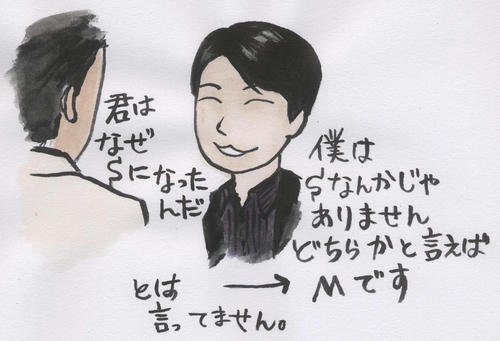 君は
なぜ
Sになった
んだ
僕は
Sなんかじゃ
ありません
どちらかと言えば
→ Mです
とは
言ってません。